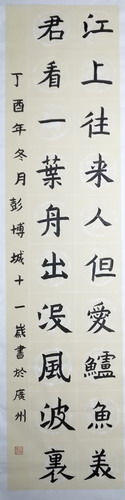 江上往来人但愛鱸魚美
君看一葉舟出沒風波裏
丁酉年冬月彭博城十一歲書於廣州